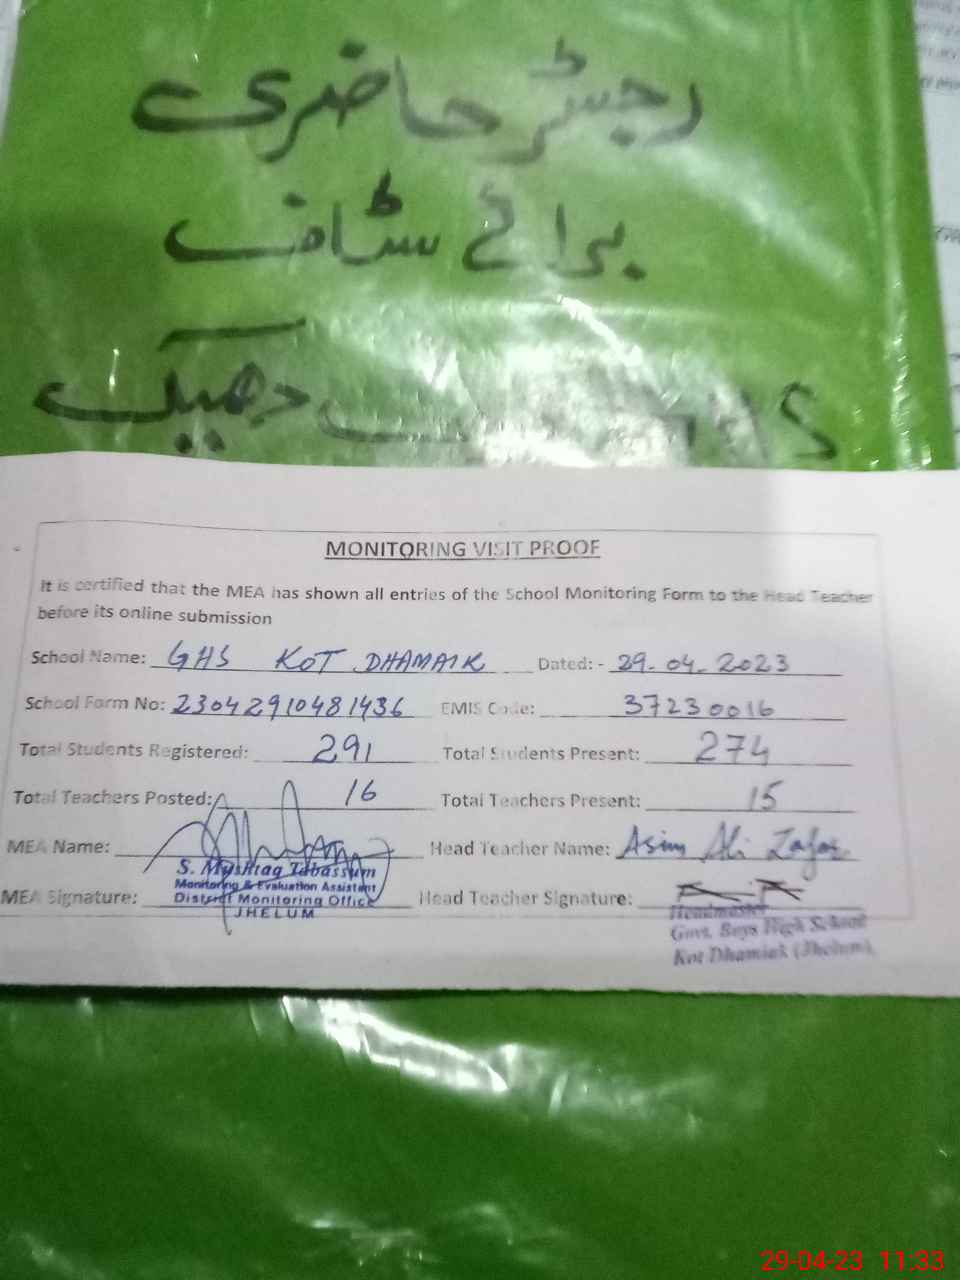 رجسٹر حاضری
برائے سٹاف
دھمیک
MONITORING VISIT PROOF
It is certified that the MEA has shown all entries of the School Monitoring Form to the Head Teacher
before its online submission
School Name: GHS KOT DHAMAIK Dated: - 29-04-2023
School Form No: 23042910481436 EMIS Code: 37230016
Total Students Registered: 291 Total Students Present: 274
Total Teachers Posted: 16 Total Teachers Present: 15
MEA Name: Head Teacher Name: Asim Ali Zafar
S. Mushtaq Tabassum
Monitoring & Evaluation Assistant
MEA Signature: District Monitoring Office Head Teacher Signature:
JHELUM
Headmaster
Govt. Boys High School
Kot Dhamiak (Jhelum).
29-04-23 11:33